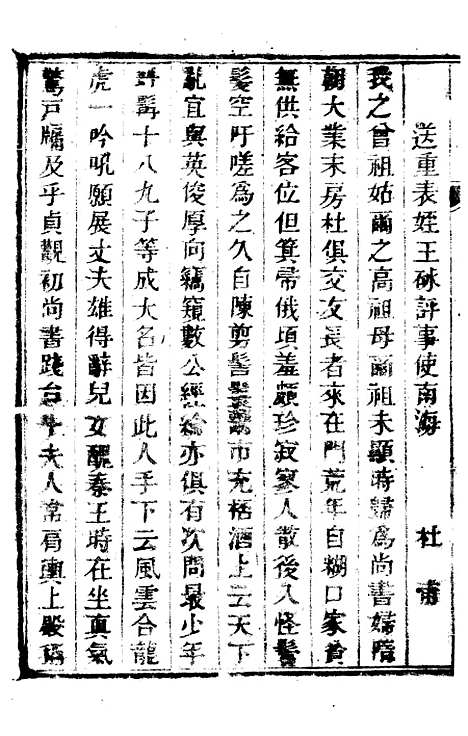 送重表姪王砅評事使南海　杜甫
我之曾祖姑爾之高祖母爾祖未顯時歸為尚書婦隋
朝大業末房杜俱交友長者來在門荒年自糊口家貧
無供給客位但箕帚俄頃羞頗珍寂寥人散後入怪鬢
髮空吁嗟爲之久自陳剪髻鬟鬻市充杯酒上云天下
亂宜與英俊厚向竊窺數公經綸亦俱有次問最少年
虬髯十八九子等成大名皆因此人手下云風雲合龍
虎一吟吼願展丈夫雄得辭兒女醜秦王時在坐真氣
驚戶牖及乎貞觀初尚書踐台斗夫人常肩輿上殿稱